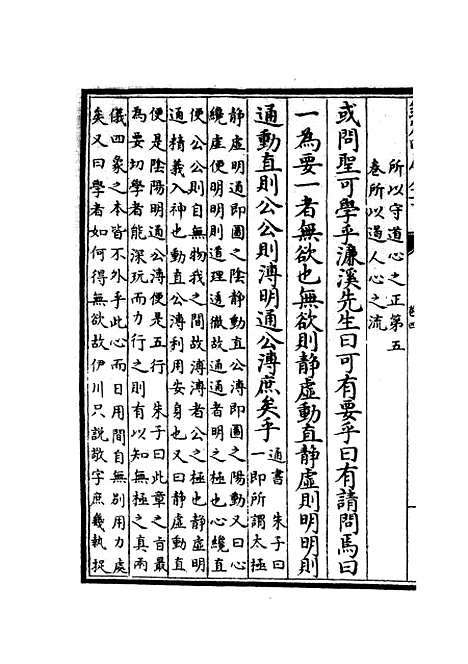 所以守道心之正第五
卷所以遏人心之流
或問聖可學乎濂溪先生曰可有要乎曰有請問焉曰
一為要一者無欲也無欲則静虛動直静虛則明明則
通動直則公公則溥明通公溥庶矣乎
通書　朱子曰
一即所謂太極
静虛明通即圖之陰静動直公溥即圖之陽動又曰心
纔虛便明明則道理透徹故通通者明之極也心纔直
便公公則自無物我之間故溥溥者公之極也静虛明
通精義入神也動直公溥利用安身也又曰静虛動直
便是陰陽明通公溥便是五行　朱子曰此章之言最
為要切學者能深玩而力行之則有以知無極之真兩
儀四象之本皆不外乎此心而日用間自無別用力處
矣又曰學者如何得無欲故伊川只說敬字庶幾執捉